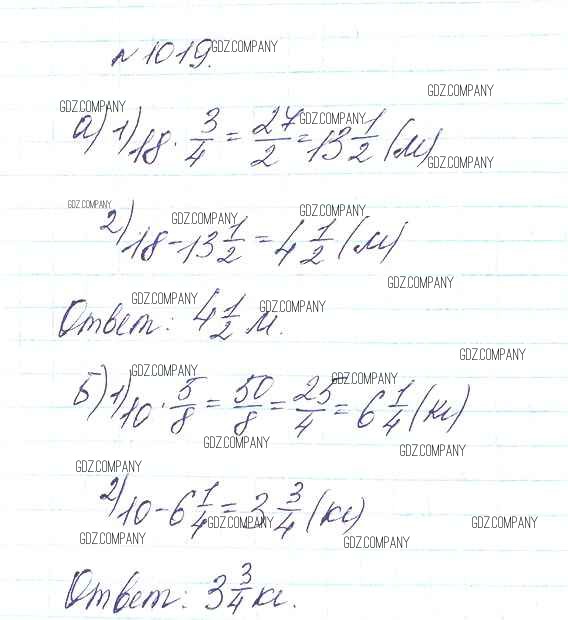 № 1019.
GDZ.COMPANY
GDZ.COMPANY
GDZ.COMPANY
GDZ.COMPANY
а) 1) 18 · 3/4 = 27/2 = 13 1/2 (м)
GDZ.COMPANY
GDZ.COMPANY
GDZ.COMPANY
GDZ.COMPANY
2) 18 - 13 1/2 = 4 1/2 (м)
GDZ.COMPANY
GDZ.COMPANY
GDZ.COMPANY
Ответ: 4 1/2 м.
GDZ.COMPANY
GDZ.COMPANY
GDZ.COMPANY
Б) 1) 10 · 5/8 = 50/8 = 25/4 = 6 1/4 (кг)
GDZ.COMPANY
GDZ.COMPANY
GDZ.COMPANY
2) 10 - 6 1/4 = 3 3/4 (кг)
GDZ.COMPANY
GDZ.COMPANY
GDZ.COMPANY
GDZ.COMPANY
Ответ: 3 3/4 кг.